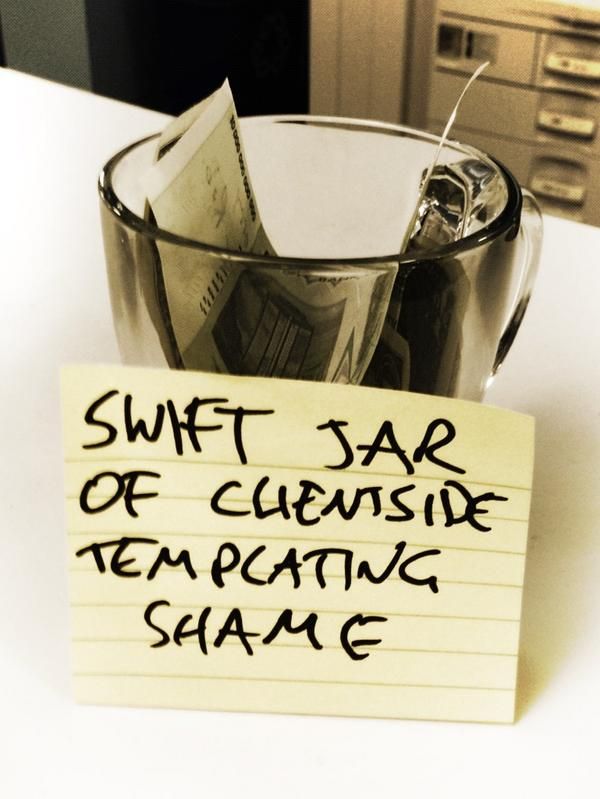 SWIFT JAR
OF CLIENTSIDE
TEMPLATING
SHAME